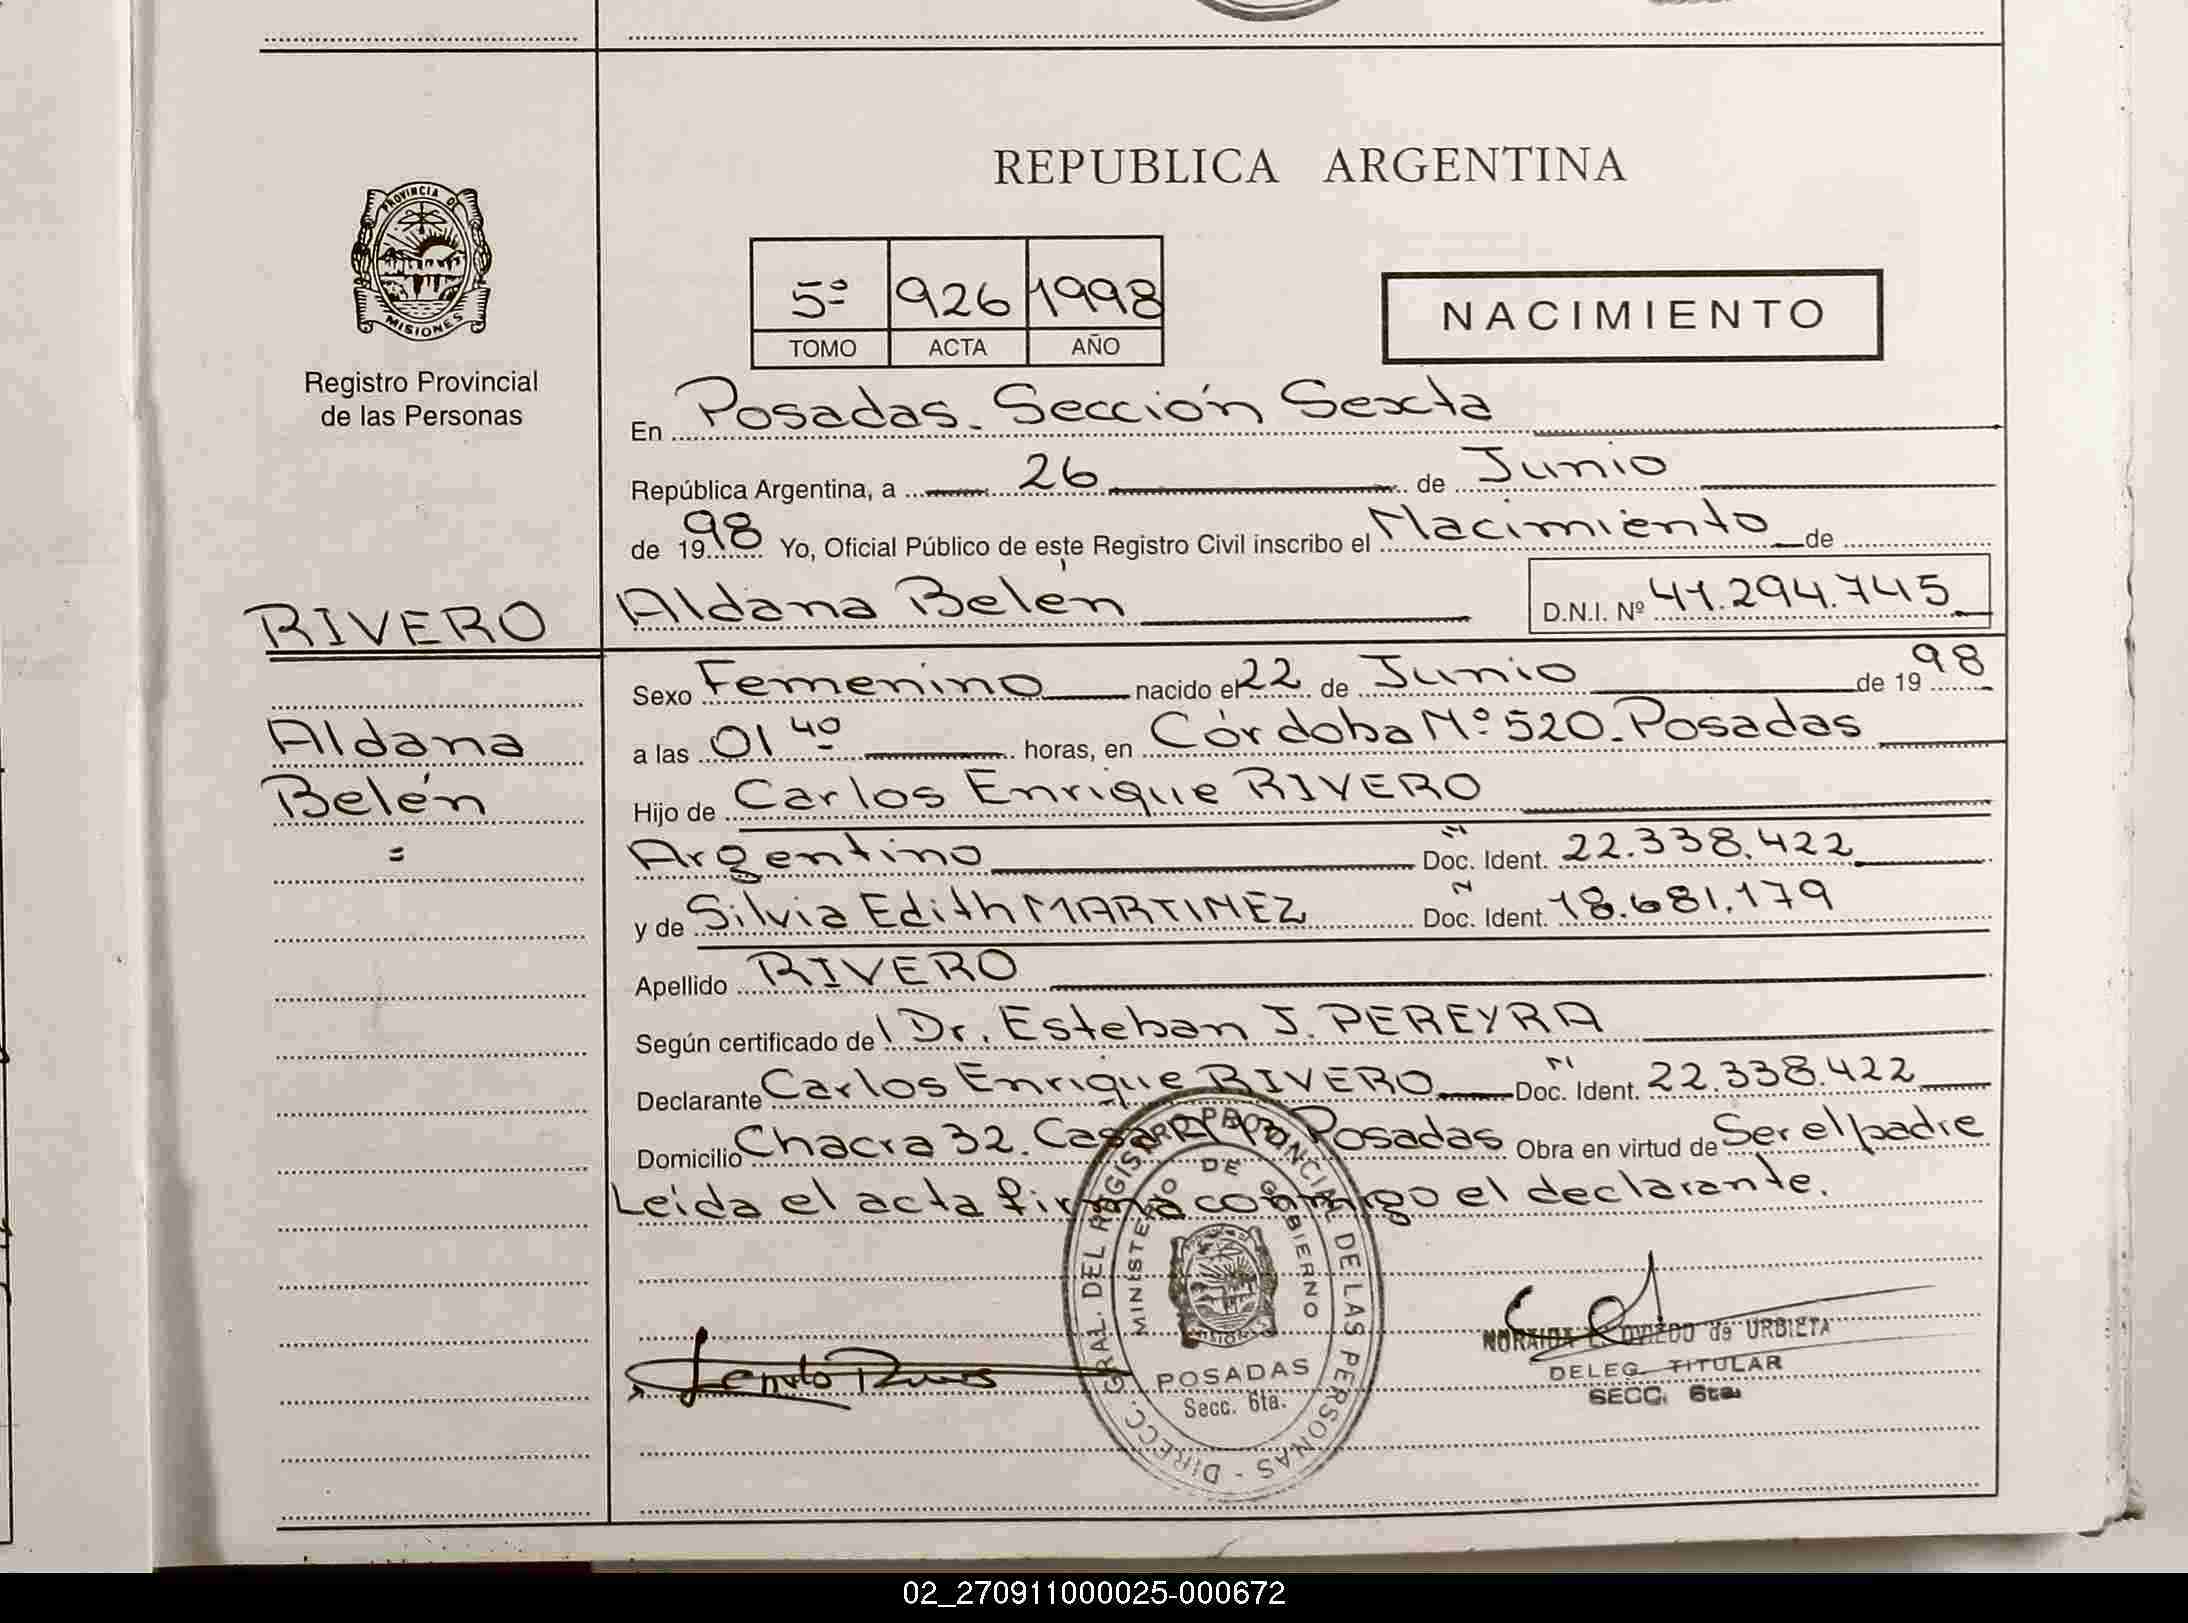 REPUBLICA ARGENTINA
PROVINCIA DE
MISIONES
Registro Provincial
de las Personas
5º 926 1998
TOMO ACTA AÑO
NACIMIENTO
En Posadas. Sección Sexta
República Argentina, a 26 de Junio
de 1998 Yo, Oficial Público de este Registro Civil inscribo el Nacimiento de
RIVERO
Aldana Belén D.N.I. Nº 41.294.745
Aldana
Belén
=
Sexo Femenino nacido el 22 de Junio de 1998
a las 01 40 horas, en Córdoba Nº 520. Posadas
Hijo de Carlos Enrique RIVERO
Argentino Doc. Ident. 22.338.422
y de Silvia Edith MARTINEZ Doc. Ident. 18.681.179
Apellido RIVERO
Según certificado de l Dr. Esteban J. PEREYRA
Declarante Carlos Enrique RIVERO Doc. Ident. 22.338.422
Domicilio Chacra 32. Casa Posadas Obra en virtud de Ser el padre
Leída el acta firma conmigo el declarante.
DIRECC. GRAL. DEL REGISTRO PROVINCIAL DE LAS PERSONAS -
MINISTERIO DE GOBIERNO
MISIONES
POSADAS
Secc. 6ta.
NORAIDA E. OVIEDO de URBIETA
DELEG. TITULAR
SECC. 6ta.
02_270911000025-000672